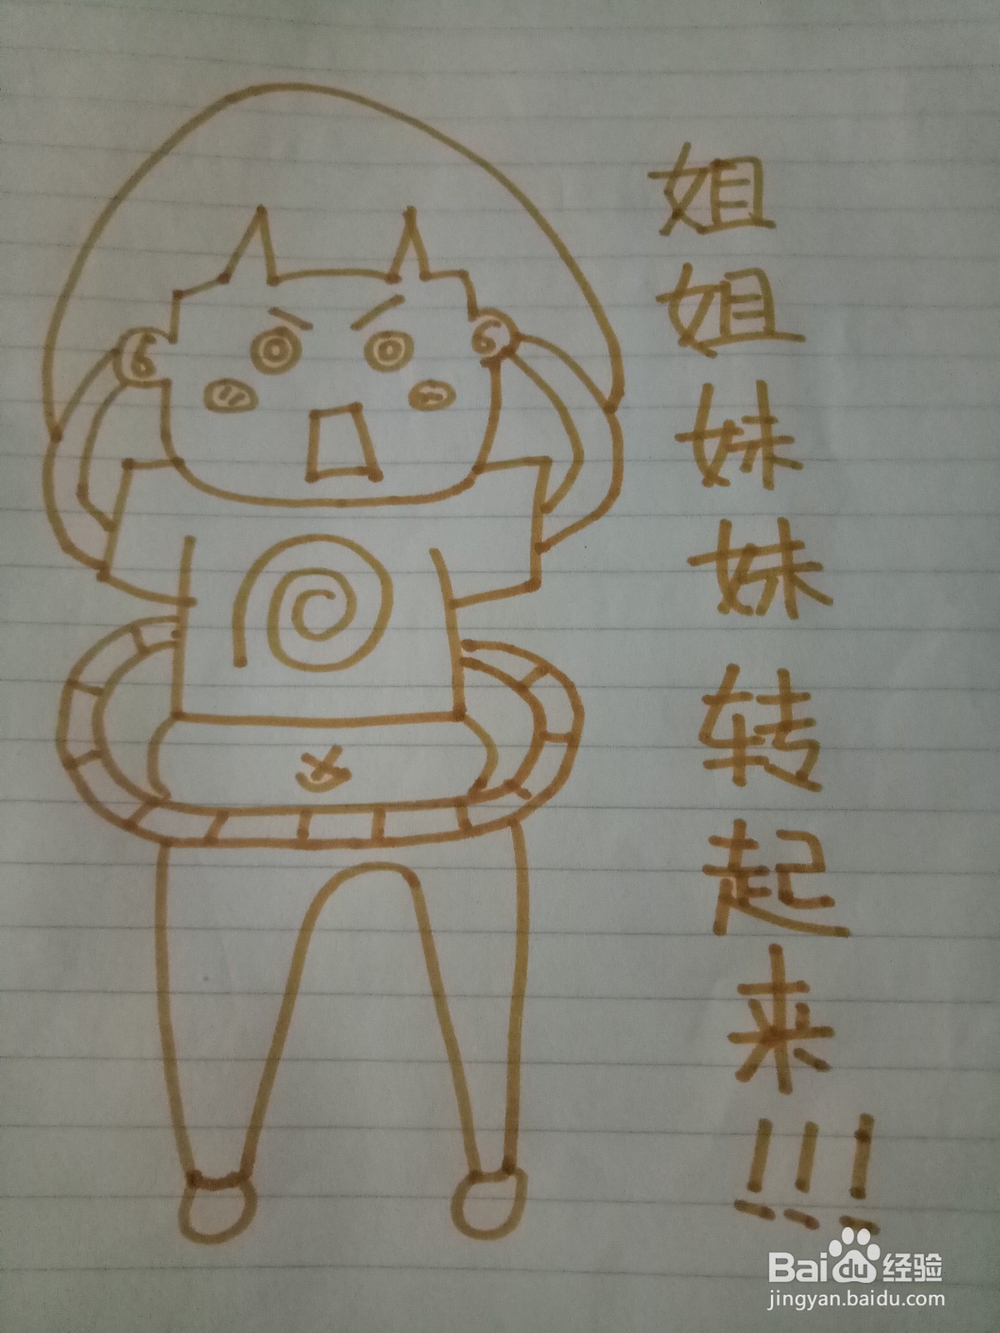 姐姐妹妹转起来!!!
6 6
Baidu经验
jingyan.baidu.com